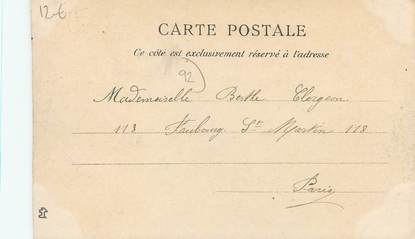 12-6
CARTE POSTALE
Ce côté est exclusivement réservé à l'adresse
92
Mademoiselle Berthe Clergeon
118 Faubourg St Martin 118
Paris